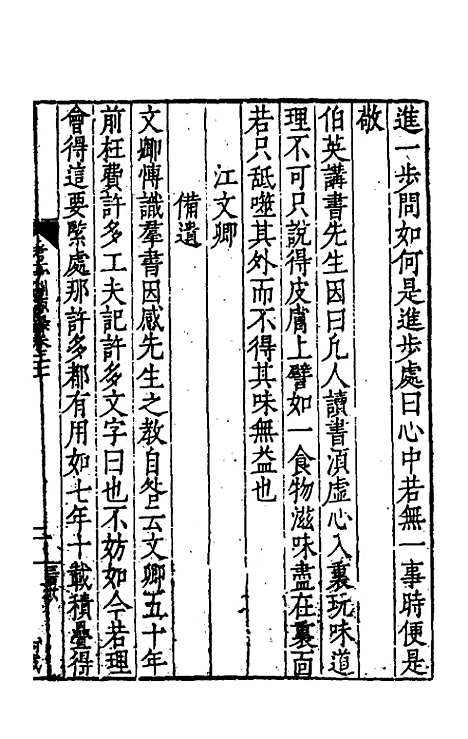 進一步問如何是進步處曰心中若無一事時便是
敬
伯英講書先生因曰凡人讀書湏虛心入裏玩味道
理不可只說得皮膚上譬如一食物滋味盡在裏面
若只舐噬其外而不得其味無益也
江文卿
備遺
文卿愽識羣書因感先生之教自咎云文卿五十年
前枉費許多工夫記許多文字曰也不妨如今若理
會得這要緊處那許多都有用如七年十載積疊得